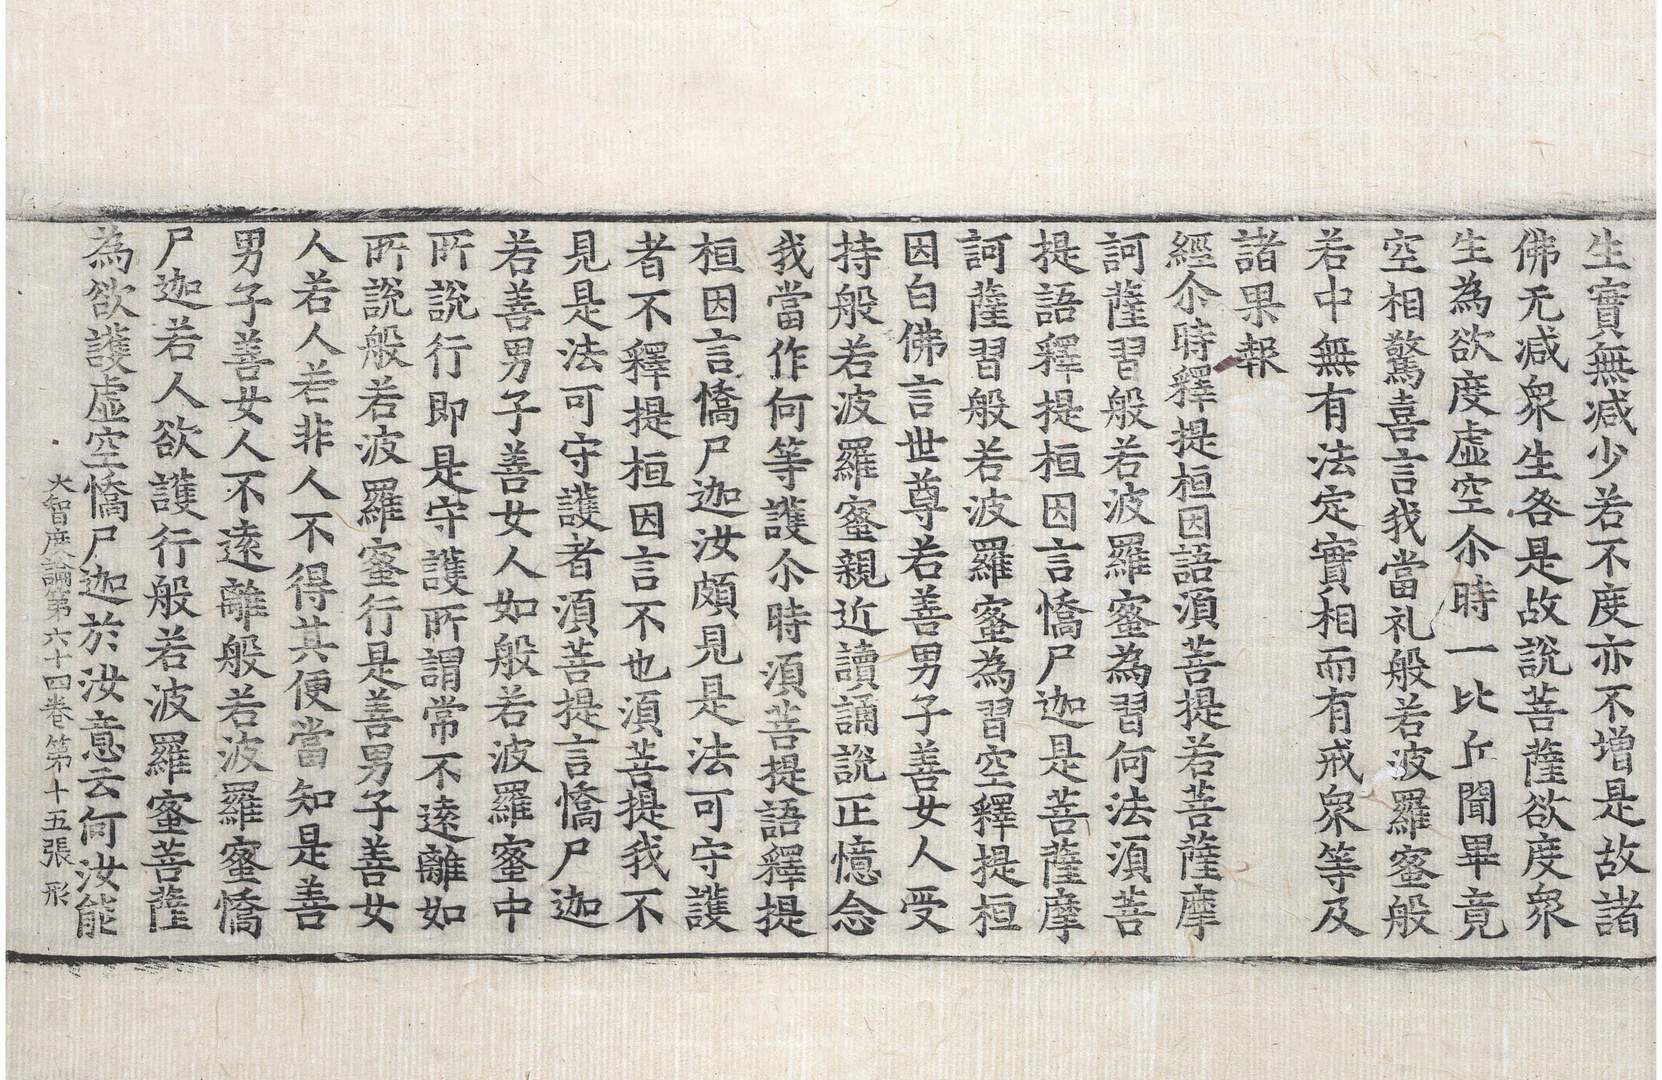 生實無減少若不度亦不增是故諸
佛无减衆生各是故說菩薩欲度衆
生為欲度虛空尒時一比丘聞畢竟
空相驚喜言我當礼般若波羅蜜般
若中無有法定實相而有戒衆等及
諸果報
經尒時釋提桓因語湏菩提若菩薩摩
訶薩習般若波羅蜜為習何法湏菩
提語釋提桓因言憍尸迦是菩薩摩
訶薩習般若波羅蜜為習空釋提桓
因白佛言世尊若善男子善女人受
持般若波羅蜜親近讀誦說正憶念
我當作何等護尒時湏菩提語釋提
桓因言憍尸迦汝頗見是法可守護
者不釋提桓因言不也湏菩提我不
見是法可守護者湏菩提言憍尸迦
若善男子善女人如般若波羅蜜中
所說行即是守護所謂常不遠離如
所說般若波羅蜜行是善男子善女
人若人若非人不得其便當知是善
男子善女人不遠離般若波羅蜜憍
尸迦若人欲護行般若波羅蜜菩薩
為欲護虛空憍尸迦於汝意云何汝能
大智度論第六十四卷第十五張 形